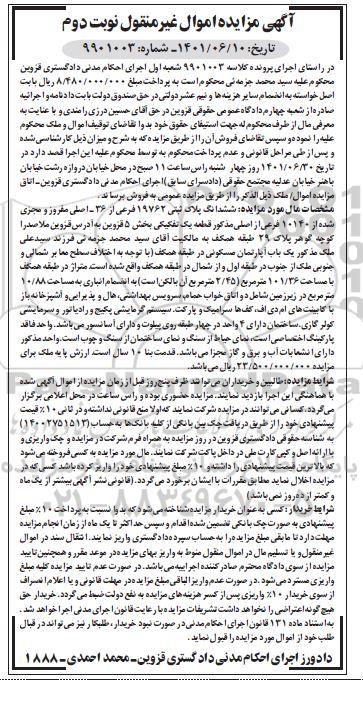 آگهی مزایده اموال غیرمنقول نوبت دوم
تاریخ: ۱۴۰۱/۰۶/۱۰ــ شماره: ۹۹۰۱۰۰۳
در راستای اجرای پرونده کلاسه ۹۹۰۱۰۰۳ شعبه اول اجرای احکام مدنی دادگستری قزوین
محکوم علیه سید محمد جزمه ئی محکوم است به پرداخت مبلغ ۸/۴۸۰/۰۰۰/۰۰۰ ریال بابت
اصل خواسته به انضمام سایر هزینه ها و نیم عشر دولتی در حق صندوق دولت بابت دادنامه و اجرائیه
صادره از شعبه چهارم دادگاه عمومی حقوقی قزوین در حق آقای حسین درزی رامندی و با عنایت به
معرفی مال از طرف محکوم له جهت استیفای حقوق خود بدوا تقاضای توقیف اموال و ملک محکوم
علیه را نموده و سپس تقاضای فروش آن را از طریق مزایده که به شرح و میزان ذیل کارشناسی شده
و پس از طی مراحل قانونی و عدم پرداخت محکوم به توسط محکوم علیه این اجرا قصد دارد در
تاریخ ۱۴۰۱/۰۶/۳۰ روز چهار شنبه راس ساعت ۱۱ صبح در محل خیابان دروازه رشت خیابان
باهنر خیابان عدلیه مجتمع حقوقی (دادسرای سابق) اجرای احکام مدنی دادگستری قزوین ـ اتاق
مزایده اموال/ ملک ذیل الذکر را از طریق مزایده عمومی به فروش برساند.
مشخصات مال مورد مزایده: ششدانگ پلاک ثبتی ۱۹۷۶۲ فرعی از ۳۶ ـ اصلی مفروز و مجزی
شده از ۱۰۱۴۰ فرعی از اصلی مذکور قطعه یک تفکیکی بخش ۵ قزوین به آدرس قزوین ملاصدرا
کوچه گوهر پلاک ۲۹ طبقه همکف به مالکیت آقای سید محمد جزمه ئی فرزند سیدعلی
ملک مذکور یک باب آپارتمان مسکونی در طبقه همکف (با توجه به اختلاف سطح معابر شمالی و
جنوبی ملک از جنوب در طبقه اول و از شمال در طبقه همکف واقع شده است، متراژ در طبقه همکف
با مساحت ۱۰۱/۳۶ مترمربع (۲/۴۵ مترمربع آن بالکن است) به انضمام انباری به مساحت ۱۰/۸۸
مترمربع در زیرزمین شامل دو اتاق خواب حمام، سرویس بهداشتی، هال و پذیرایی و آشپزخانه باز
با کابینت های ام دی اف، کف ها سرامیک و پارکت. سیستم گرمایشی پکیج و رادیاتور و سرمایشی
کولر گازی. ساختمان دارای ۴ واحد در چهار طبقه روی پیلوت و دارای آسانسور می باشد. واحد فاقد
پارکینگ اختصاصی است، نمای حیاط از سنگ و نمای ساختمان از سنگ و چوب است، واحد مذکور
دارای انشعابات آب و برق و گاز مجزا می باشد. قدمت بنا ۱۰ سال است. ارزش پایه ملک برای
مزایده ۲۳/۵۰۰/۰۰۰/۰۰۰ ریال می باشد.
شرایط مزایده: طالبین و خریداران می توانند ظرف پنج روز قبل از زمان مزایده از اموال آگهی شده
با هماهنگی این اجرا بازدید نمایند. مزایده حضوری بوده و راس ساعت در محل اعلامی برگزار
می گردد، کسانی می توانند در مزایده شرکت نمایند که اولا منع قانونی نداشته و در ثانی ۱۰٪ قیمت
پیشنهادی خود را از طریق دریافت چک بین بانکی از کلیه بانک ها به حساب (۱۴۰۰۲۷۵۱۵۱۳)
به شناسه حقوقی دادگستری قزوین در روز مزایده به همراه فرم شرکت در مزایده و چک واریزی و
با ارائه اصل و کپی کارت ملی در داخل پاکت شرکت نمایند. مال مورد مزایده به کسی فروخته می شود
که بالاترین قیمت پیشنهادی را داشته و ۱۰٪ مبلغ پیشنهادی خود را واریز کرده باشد کسی که در
مزایده اخلال نماید مطابق مقررات با ایشان برخورد می گردد. (قانونی نشر آگهی بیشتر از یک ماه
و کمتر از ده روز نمی باشد)
شرایط خریدار: کسی به عنوان خریدار مزایده شناخته می شود که بدوا نسبت به پرداخت ۱۰٪ مبلغ
پیشنهادی به صورت چک بانکی تضمین شده اقدام و سپس حداکثر تا یک ماه از زمان انجام مزایده
مهلت دارد تا مابقی مبلغ مزایده را به حساب سپرده دادگستری واریز نمایند. انتقال سند در اموال
غیرمنقول و یا تسلیم مال در اموال منقول منوط به واریز بهای مزایده در موعد مقرر و همچنین تایید
مزایده از سوی دادگاه محترم صادرکننده اجراییه می باشد. در صورت عدم تایید مزایده کلیه مبلغ
واریزی مسترد می شود. در صورت عدم واریز الباقی مبلغ مزایده در مهلت قانونی و یا اعلام انصراف
از سوی خریدار ۱۰٪ واریزی پس از کسر هزینه های مزایده به نفع دولت ضبط می گردد. خریدار حق
هیچ گونه اعتراضی را نخواهد داشت تشریفات مزایده با رعایت قانون اجرای مدنی اجرا خواهد شد.
به استناد ماده ۱۳۱ قانون اجرای احکام مدنی در صورت نبود خریدار، طلبکار نیز می تواند در قبال
طلب خود از اموال مورد مزایده را قبول نماید.
دادورز اجرای احکام مدنی دادگستری قزوین ـ محمد احمدی ـ ۱۸۸۸